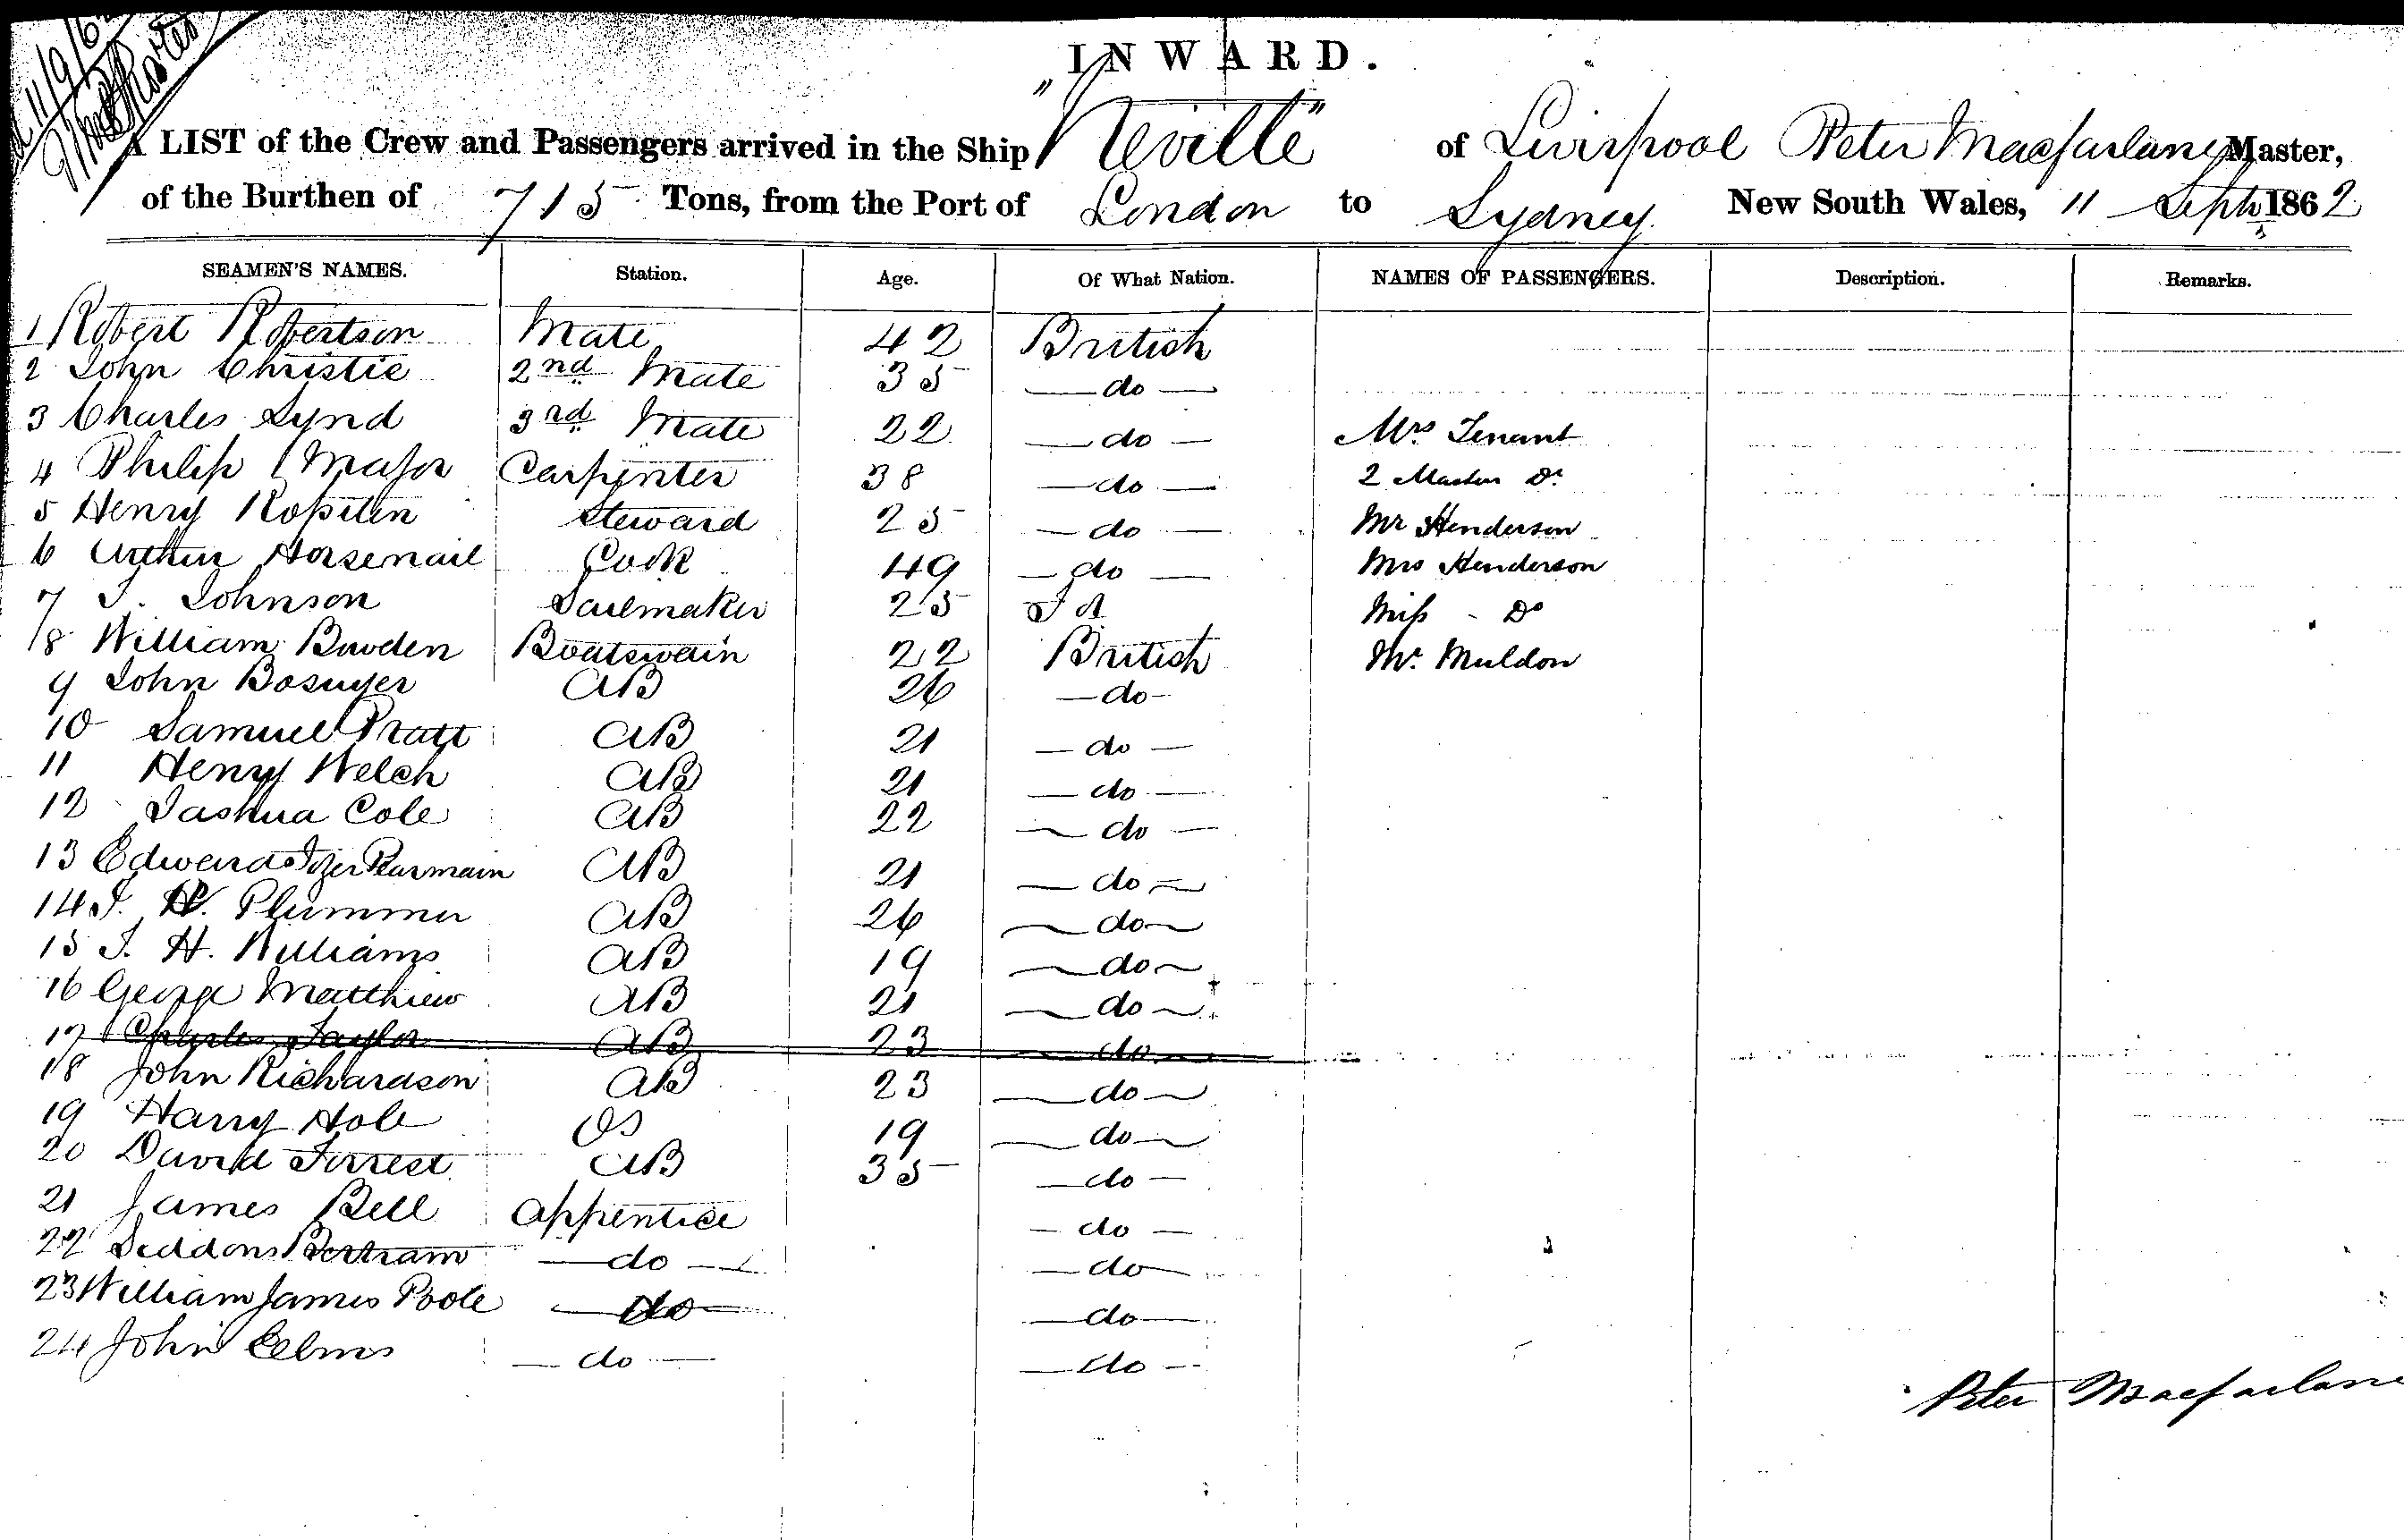 INWARD.
A LIST of the Crew and Passengers arrived in the Ship "Neville" of Liverpool Peter Macfarlane Master,
of the Burthen of 715 Tons, from the Port of London to Sydney New South Wales, 11 Septr 1862
SEAMEN'S NAMES. Station. Age. Of What Nation. NAMES OF PASSENGERS. Description. Remarks.
1 Robert Robertson Mate 42 British
2 John Christie 2nd Mate 35 — do —
3 Charles Lynd 3rd Mate 22 — do — Mrs Tenant
4 Philip Major Carpenter 38 — do — 2 Masters Do
5 Henry Steward 25 — do — Mr Henderson
6 Arthur Horsenail Cook 49 — do — Mrs Henderson
7 J. Johnson Sailmaker 25 Miss - Do
8 William Bowden Boatswain 22 British Mr. Muldon
9 John AB 26 — do —
10 Samuel Pratt AB 21 — do —
11 Henry Welch AB 21 — do —
12 Jashua Cole AB 22 — do —
13 Edward Pearmain AB 21 — do —
14 J. W. Plummer AB 26 — do —
15 J. H. Williams AB 19 — do —
16 George Matthew AB 21 — do —
17 Charles Taylor AB 23 — do —
18 John Richardson AB 23 — do —
19 Harry Hole OS 19 — do —
20 David Forrest AB 35 — do —
21 James Bell Appentice — do —
22 Seddons Bertram — do — — do —
23 William James Poole — do — — do —
24 John Elms — do — — do —
Peter Macfarlane